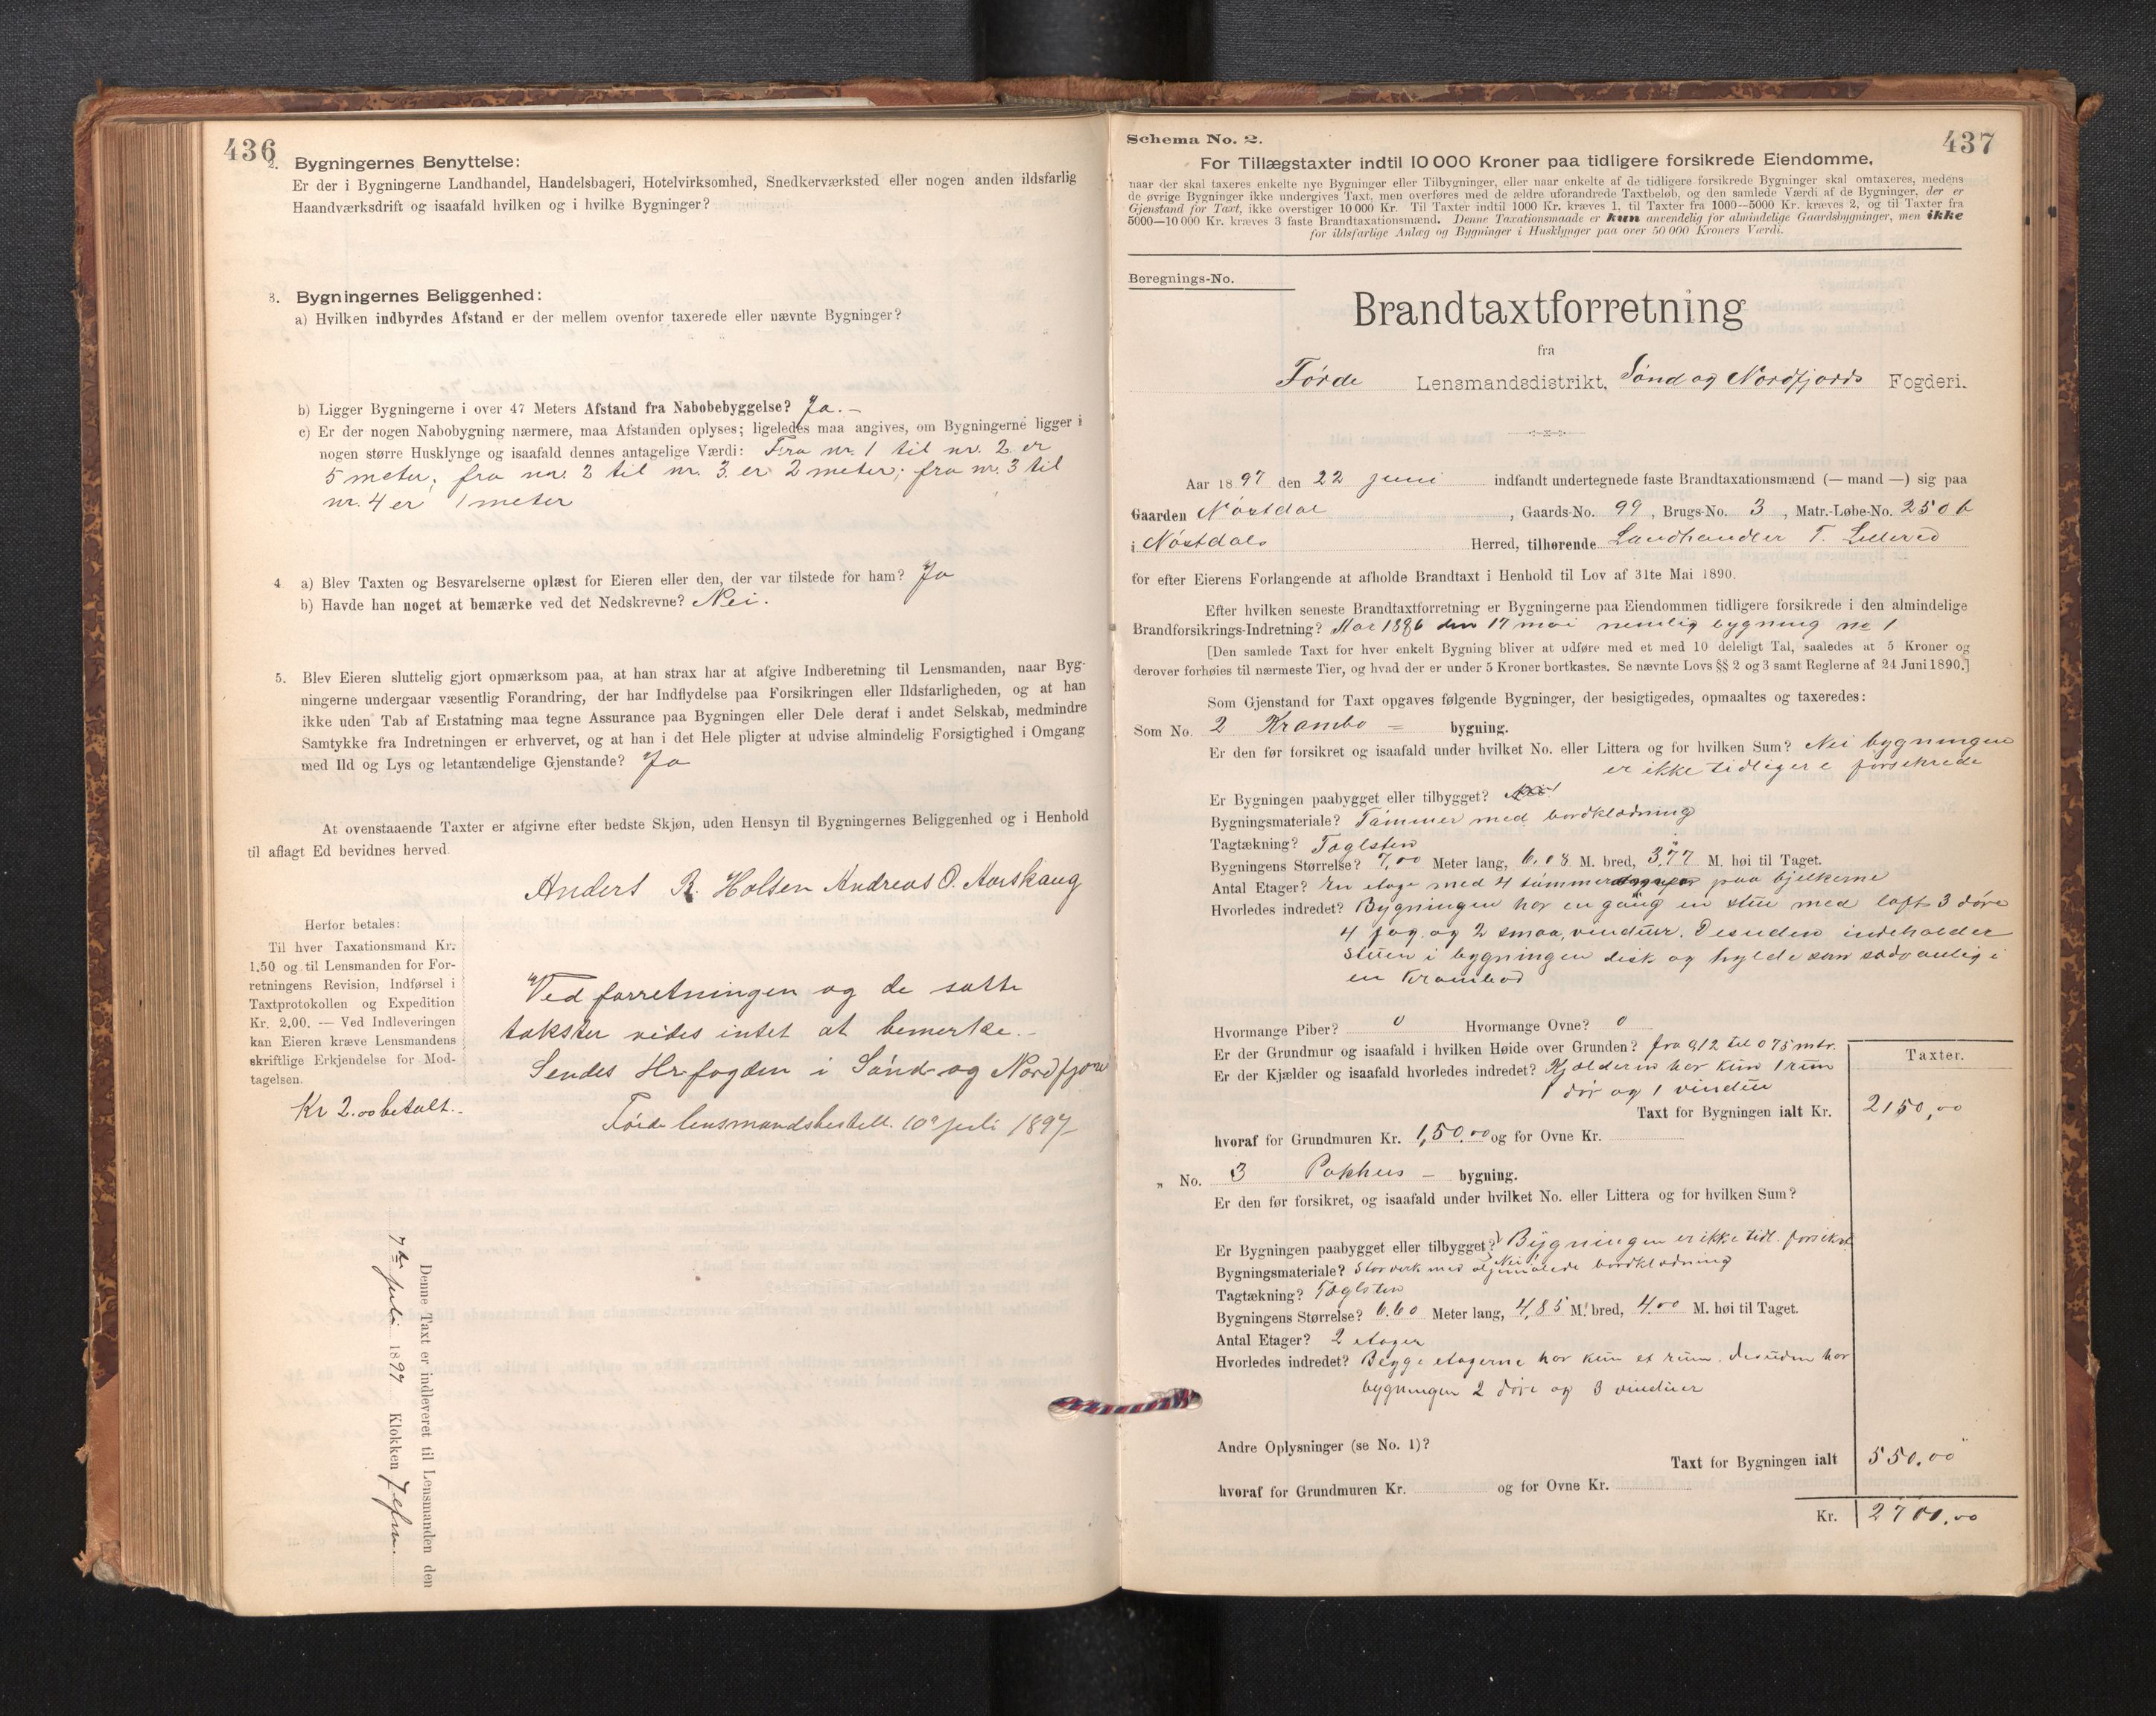 436
2. Bygningernes Benyttelse:
Er der i Bygningerne Landhandel, Handelsbageri, Hotelvirksomhed, Snedkerværksted eller nogen anden ildsfarlig
Haandværksdrift og isaafald hvilken og i hvilke Bygninger?
3. Bygningernes Beliggenhed:
a) Hvilken indbyrdes Afstand er der mellem ovenfor taxerede eller nævnte Bygninger?
b) Ligger Bygningerne i over 47 Meters Afstand fra Nabobebyggelse? Ja. –
c) Er der nogen Nabobygning nærmere, maa Afstanden oplyses; ligeledes maa angives, om Bygningerne ligger i
nogen større Husklynge og isaafald dennes antagelige Værdi: Fra nr. 1 til nr. 2 er
5 meter; fra nr. 2 til nr. 3 er 2 meter; fra nr. 3 til
nr. 4 er 1 meter
4 a) Blev Taxten og Besvarelserne oplæst for Eieren eller den, der var tilstede for ham? Ja
b) Havde han noget at bemærke ved det Nedskrevne? Nei.
5. Blev Eieren sluttelig gjort opmærksom paa, at han strax har at afgive Indberetning til Lensmanden, naar Byg-
ningerne undergaar væsentlig Forandring, der har Indflydelse paa Forsikringen eller Ildsfarligheden, og at han
ikke uden Tab af Erstatning maa tegne Assurance paa Bygningen eller Dele deraf i andet Selskab, medmindre
Samtykke fra Indretningen er erhvervet, og at han i det Hele pligter at udvise almindelig Forsigtighed i Omgang
med Ild og Lys og letantændelige Gjenstande? Ja
At ovenstaaende Taxter er afgivne efter bedste Skjøn, uden Hensyn til Bygningernes Beliggenhed og i Henhold
til aflagt Ed bevidnes herved.
Anders R. Holsen Andreas O. Aarskaug
Herfor betales:
Til hver Taxationsmand Kr.
1.50 og til Lensmanden for For-
retningens Revision, Indførsel i
Taxtprotokollen og Expedition
Kr. 2.00. — Ved Indleveringen
kan Eieren kræve Lensmandens
skriftlige Erkjendelse for Mod-
tagelsen.
Kr 2.00 betalt.-
Ved forretningen og de satte
takster vides intet at bemerke. –
Sendes Hr fogden i Sönd- og Nordfjord
Förde lensmandsbestell. 10 juli 1897
Denne Taxt er indleveret til Lensmanden den
7de juli 1897 Klokken 7 efm.
437
Schema No. 2.
For Tillægstaxter indtil 10 000 Kroner paa tidligere forsikrede Eiendomme,
naar der skal taxeres enkelte nye Bygninger eller Tilbygninger, eller naar enkelte af de tidligere forsikrede Bygninger skal omtaxeres, medens
de øvrige Bygninger ikke undergives Taxt, men overføres med de ældre uforandrede Taxtbeløb, og den samlede Værdi af de Bygninger, der er
Gjenstand for Taxt, ikke overstiger 10 000 Kr. Til Taxter indtil 1000 Kr. kræves 1, til Taxter fra 1000—5000 Kr. kræves 2, og til Taxter fra
5000—10 000 Kr. kræves 3 faste Brandtaxationsmænd. Denne Taxationsmaade er kun anvendelig for almindelige Gaardsbygninger, men ikke
for ildsfarlige Anlæg og Bygninger i Husklynger paa over 50 000 Kroners Værdi.
Beregnings-No.
Brandtaxtforretning
fra
Förde Lensmandsdistrikt, Sönd og Nordfjords Fogderi.
Aar 1897 den 22 juni indfandt undertegnede faste Brandtaxationsmænd (— mand —) sig paa
Gaarden Nöstdal, Gaards-No. 99, Brugs-No. 3, Matr.-Løbe-No. 250 b
i Nöstdals Herred, tilhørende Landhandler T.
for efter Eierens Forlangende at afholde Brandtaxt i Henhold til Lov af 31te Mai 1890.
Efter hvilken seneste Brandtaxtforretning er Bygningerne paa Eiendommen tidligere forsikrede i den almindelige
Brandforsikrings-Indretning? Aar 1896 den 17 mai nemlig bygning no 1
[Den samlede Taxt for hver enkelt Bygning bliver at udføre med et med 10 deleligt Tal, saaledes at 5 Kroner og
derover forhøies til nærmeste Tier, og hvad der er under 5 Kroner bortkastes. Se nævnte Lovs §§ 2 og 3 samt Reglerne af 24 Juni 1890.]
Som Gjenstand for Taxt opgaves følgende Bygninger, der besigtigedes, opmaaltes og taxeredes:
Som No. 2 Krambo = bygning.
Er den før forsikret og isaafald under hvilket No. eller Littera og for hvilken Sum? Nei bygningen
er ikke tidligere forsekrede
Er Bygningen paabygget eller tilbygget? Nei
Bygningsmateriale? Tömmer med bordklædning
Tagtækning? Taglsten
Bygningens Størrelse? 7,00 Meter lang, 6.08 M. bred, 3,77 M. høi til Taget.
Antal Etager? En etage med 4 tömmer paa bjelkerne
Hvorledes indredet? Bygningen har en gang en stue med loft 3 döre
4 fag og 2 smaa vinduer. Desuden indeholder
stuen i bygningen disk og hylde som sædvanlig i
en Krambod
Hvormange Piber? 0 Hvormange Ovne? 0
Er der Grundmur og isaafald i hvilken Høide over Grunden? fra 912 til 075 mtr.
Er der Kjælder og isaafald hvorledes indredet? Kjælderen har kun 1 rum
1 dör og 1 vindue
Taxter.
Taxt for Bygningen ialt Kr. 2150,00
hvoraf for Grundmuren Kr. 1,50.00 og for Ovne Kr.
„ No. 3 Pakhus – bygning.
Er den før forsikret, og isaafald under hvilket No. eller Littera og for hvilken Sum?
Er Bygningen paabygget eller tilbygget? Bygningen er ikke tidl. forsikret
Nei
Bygningsmateriale? Stavverk med oljemalede bordklædning
Tagtækning? Taglsten
Bygningens Størrelse? 6.60 Meter lang, 4,85 M. bred, 4.00 M. høi til Taget.
Antal Etager? 2 etager
Hvorledes indredet? Begge etagerne har kun et rum. desuden har
bygningen 2 döre og 3 vinduer
Andre Oplysninger (se No. 1)?
Taxt for Bygningen ialt 550.00
hvoraf for Grundmuren Kr. og for Ovne Kr.
Kr. 2700.00